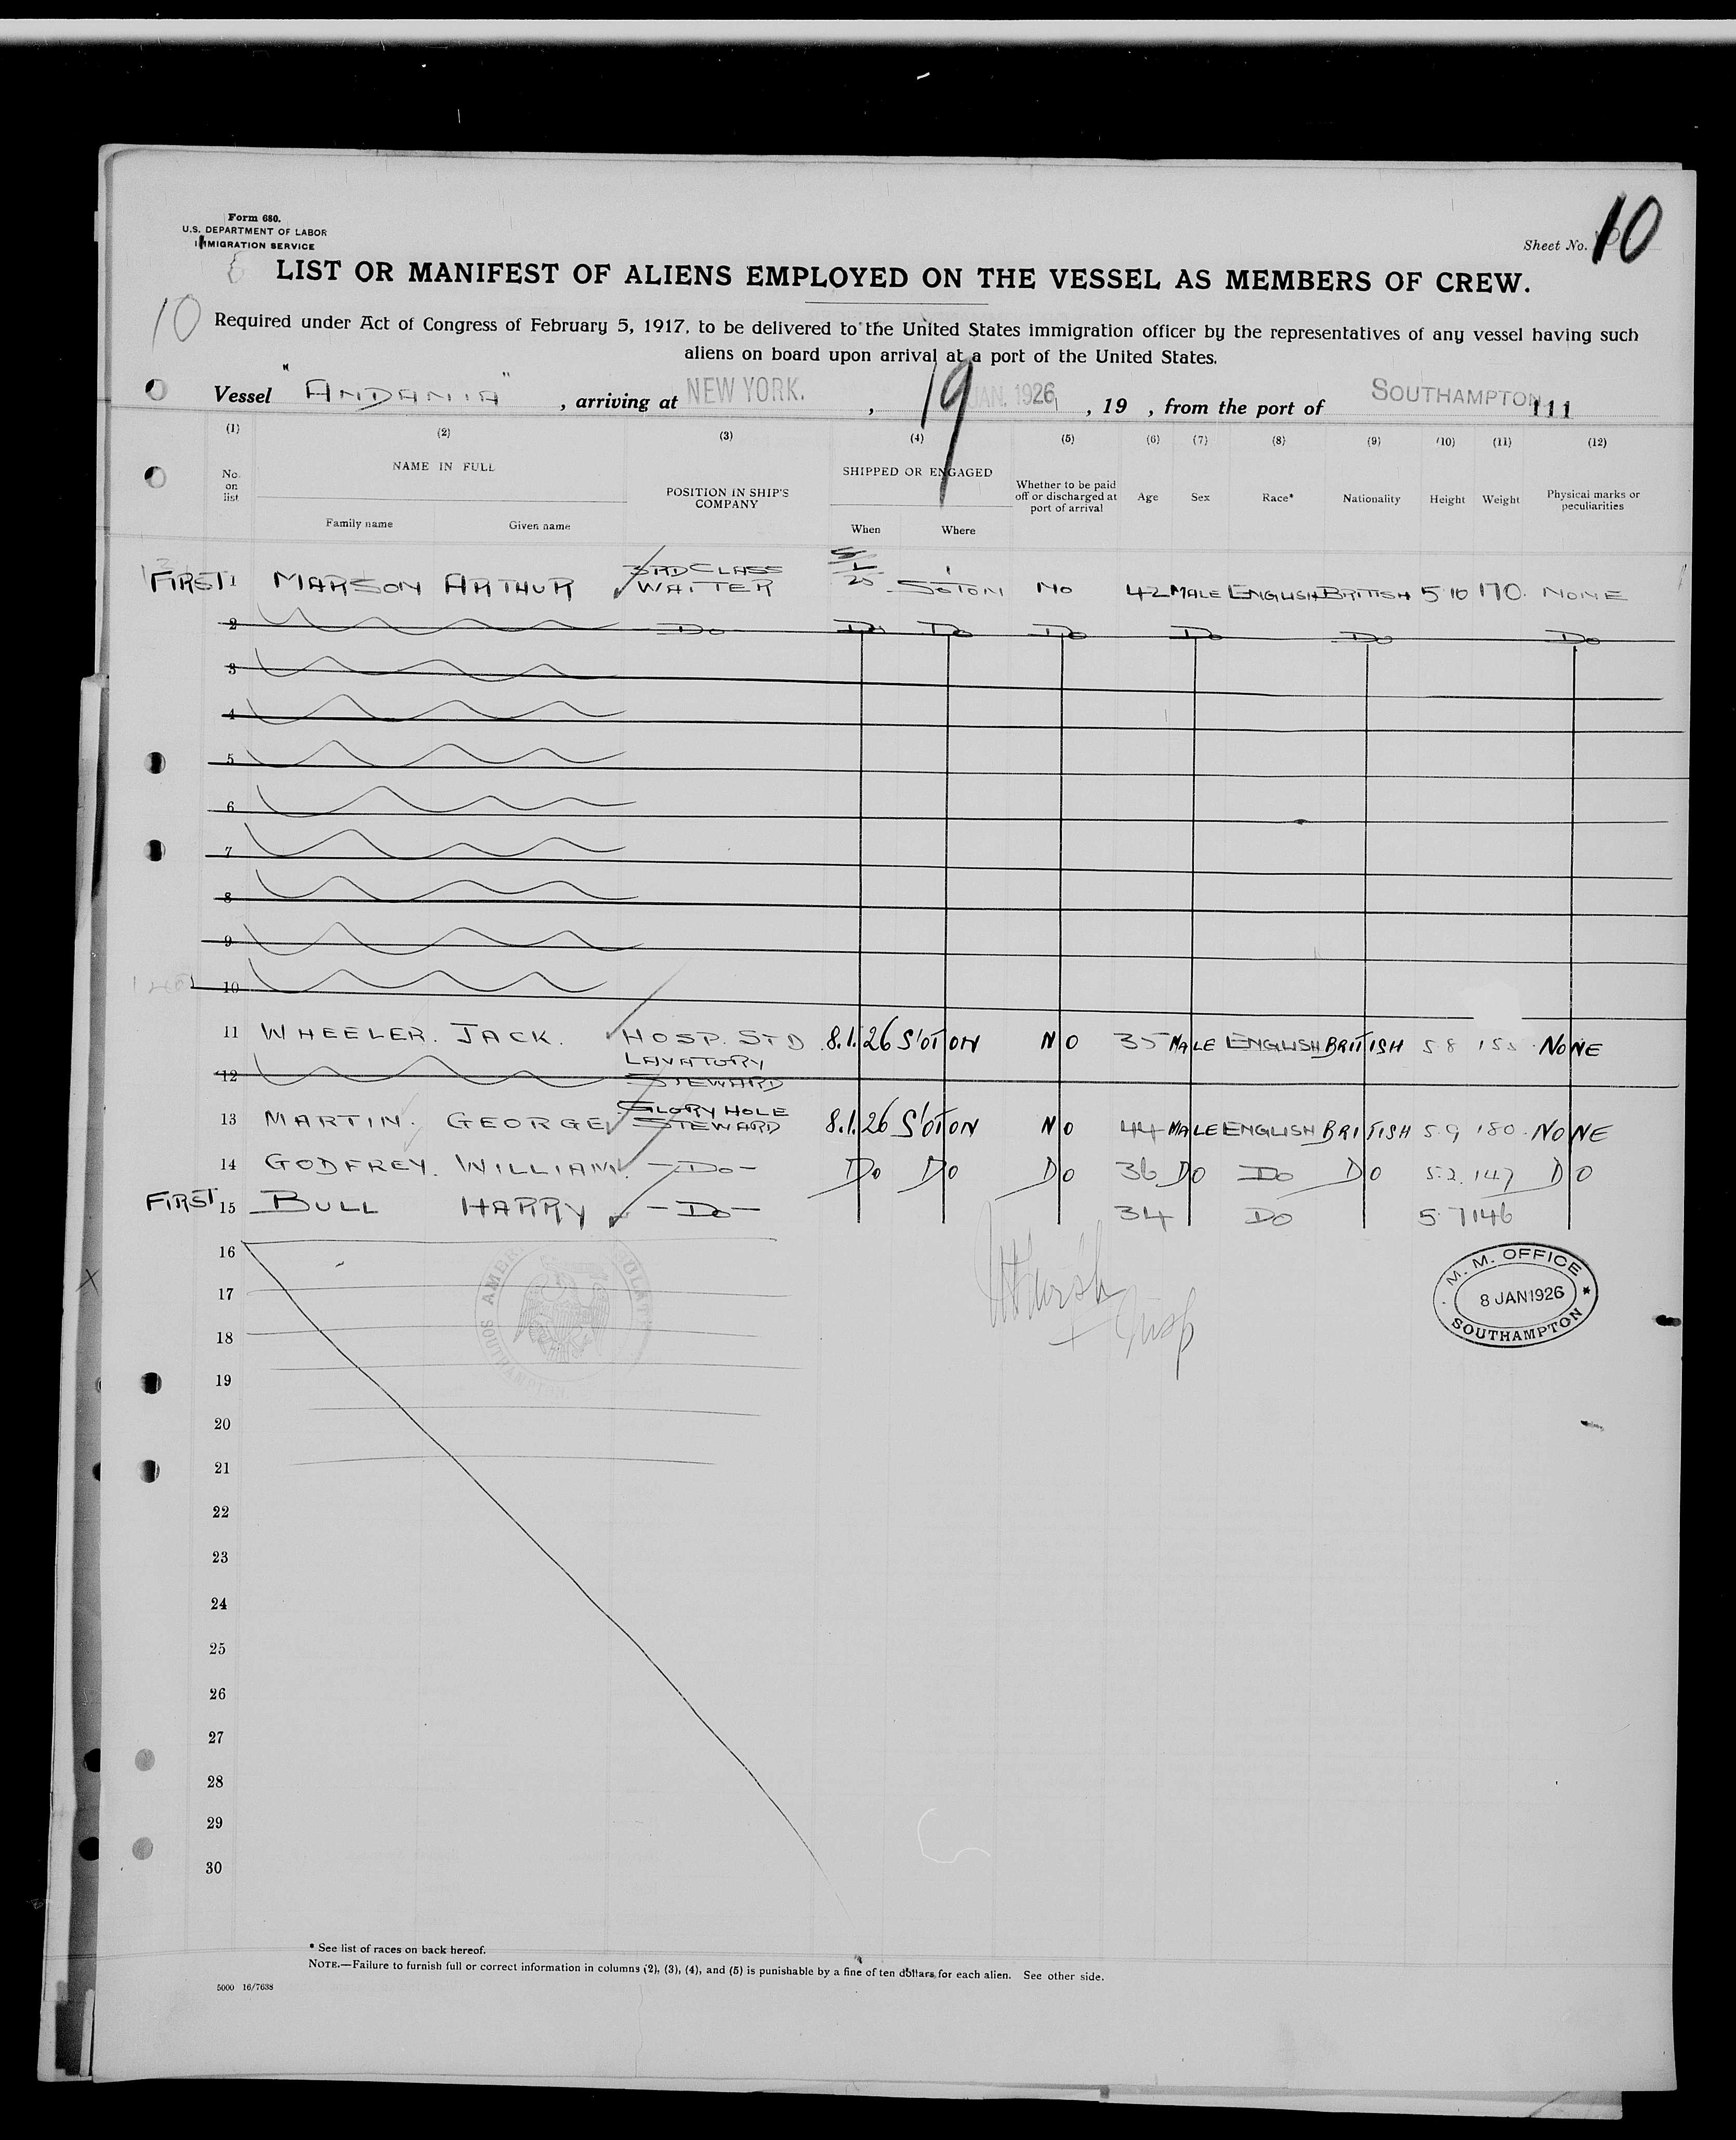 Form 680.
U.S. DEPARTMENT OF LABOR
IMMIGRATION SERVICE
Sheet No. 10
LIST OR MANIFEST OF ALIENS EMPLOYED ON THE VESSEL AS MEMBERS OF CREW.
10
Required under Act of Congress of February 5, 1917, to be delivered to the United States immigration officer by the representatives of any vessel having such
aliens on board upon arrival at a port of the United States.
Vessel "ANDANIA", arriving at NEW YORK. , 19 JAN. 1926 , 19 , from the port of SOUTHAMPTON 111
(1) (2) (3) (4) (5) (6) (7) (8) (9) (10) (11) (12)
No. on list
NAME IN FULL
Family name Given name
POSITION IN SHIP'S COMPANY
SHIPPED OR ENGAGED
When Where
Whether to be paid off or discharged at port of arrival
Age Sex Race* Nationality Height Weight Physical marks or peculiarities
FIRST 1 MARSON ARTHUR 3RD CLASS WAITER S'OTON NO 42 MALE ENGLISH BRITISH 5 10 170. NONE
2 Do Do Do Do Do Do Do
3
4
5
6
7
8
9
10
11 WHEELER. JACK. HOSP. STD 8.1.26 S'OTON NO 35 MALE ENGLISH BRITISH 5 8 NONE
12 LAVATORY STEWARD
13 MARTIN. GEORGE GLORY HOLE STEWARD 8.1.26 S'OTON NO 44 MALE ENGLISH BRITISH 5.9 180. NONE
14 GODFREY. WILLIAM. —Do— Do Do Do 36 DO Do Do 5.2. 147 DO
FIRST 15 BULL HARRY —Do— 34 DO 5.7 146
16
M. M. OFFICE
8 JAN 1926
SOUTHAMPTON
AMERICAN
SOUTHAMPTON
17
18
19
20
21
22
23
24
25
26
27
28
29
30
* See list of races on back hereof.
NOTE.—Failure to furnish full or correct information in columns (2), (3), (4), and (5) is punishable by a fine of ten dollars for each alien. See other side.
5000 16/7638